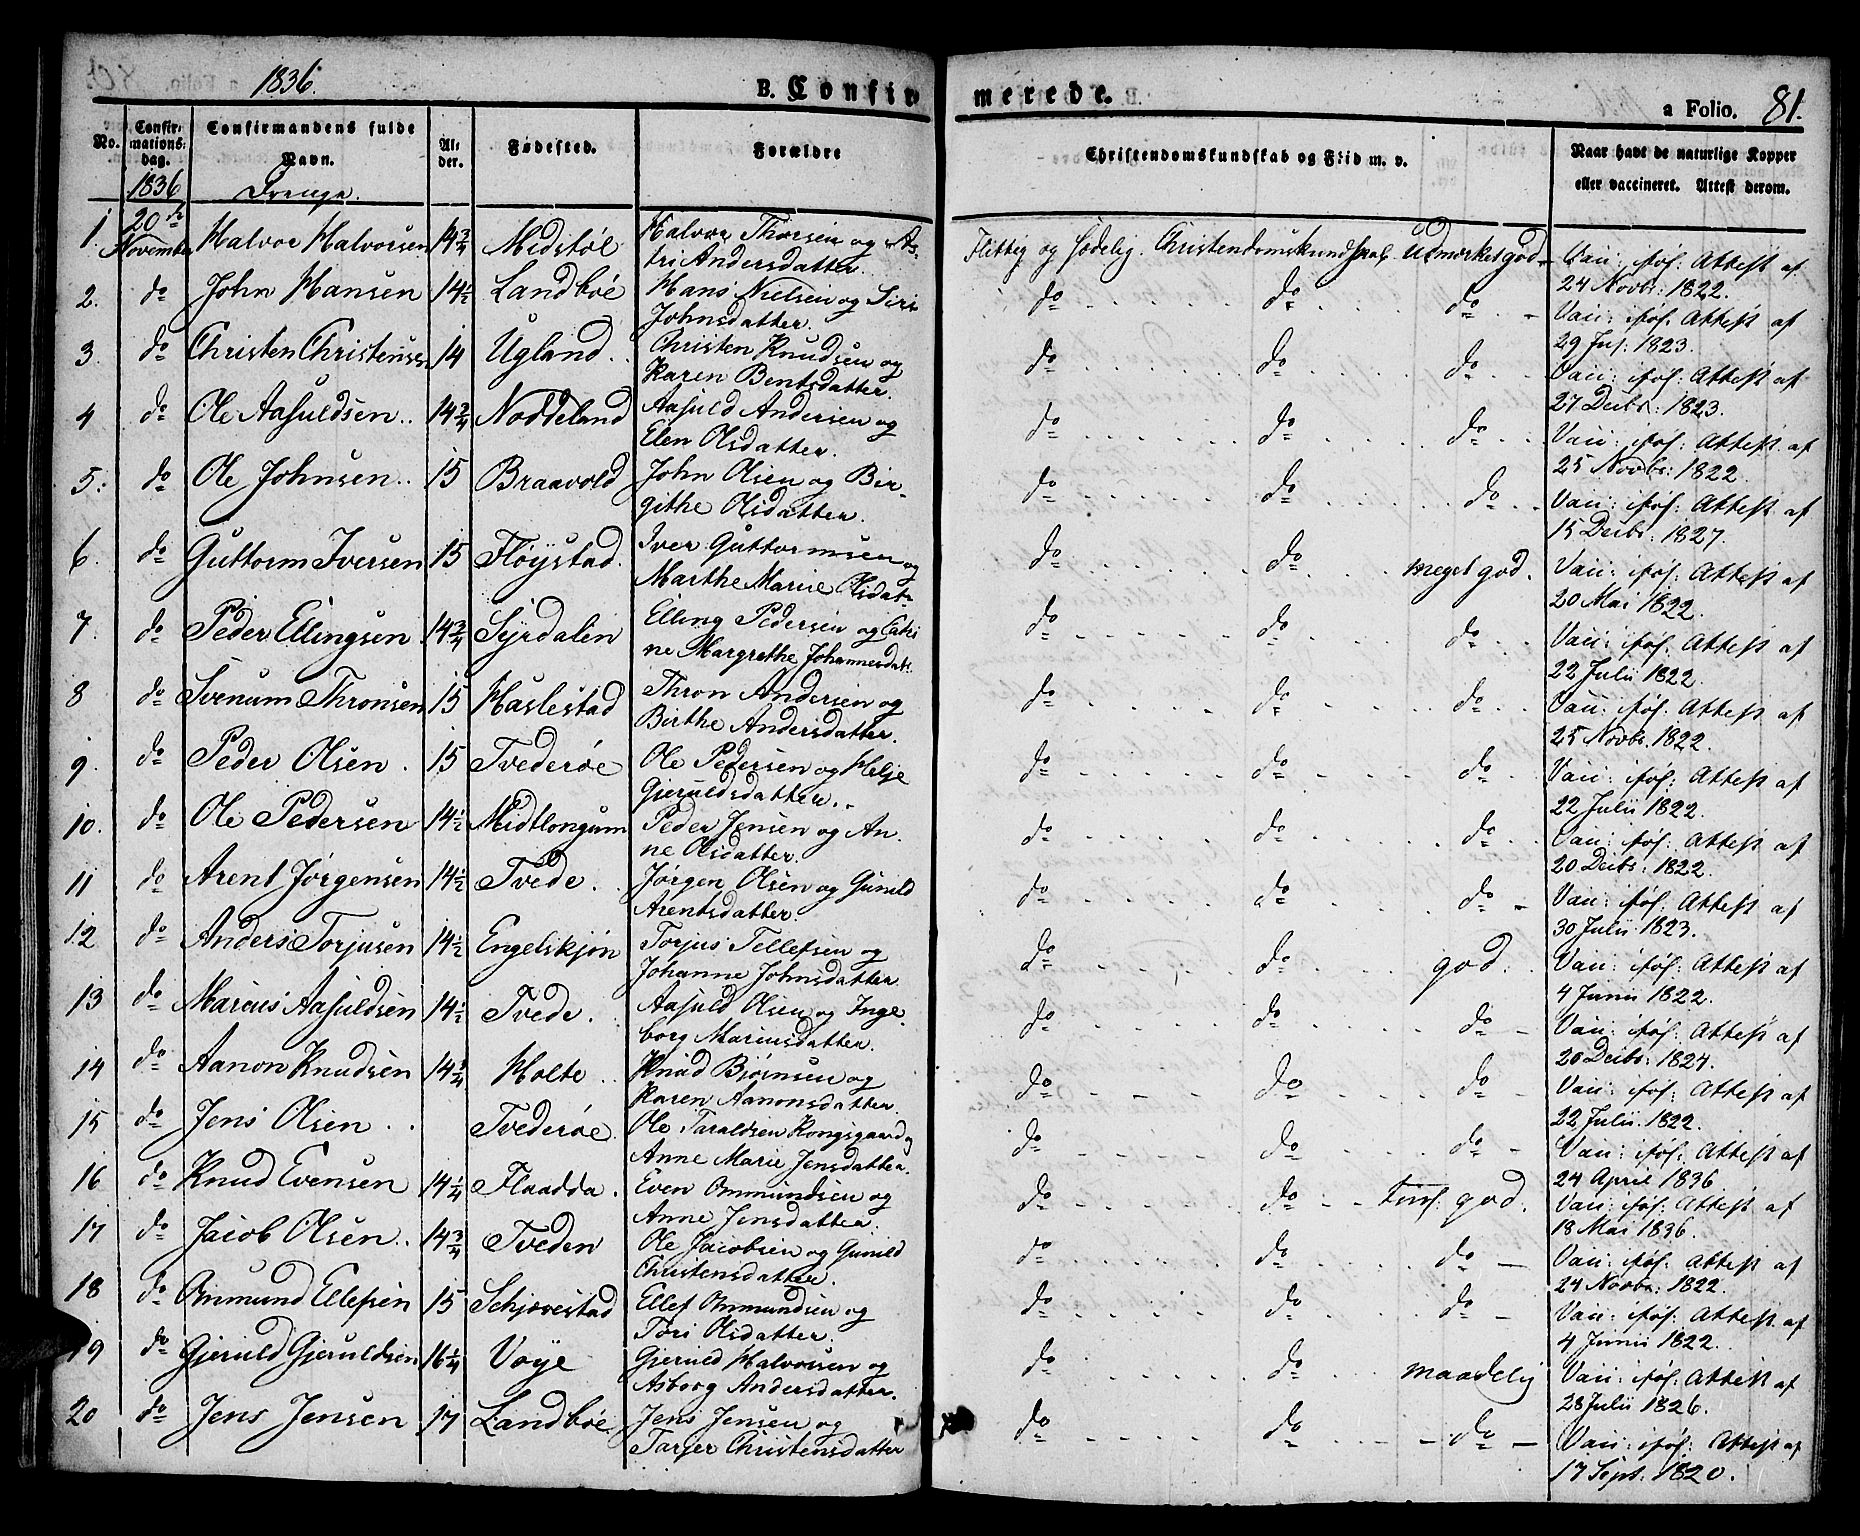 1836. B. Confirmerede. a Folio. 81.
No. Confirmationsdag. Confirmandens fulde Navn. Alder. Fødested. Forældre Christendomskundskab og Flid m. v. Naar havt de naturlige Kopper eller vaccineret. Attest derom.
1836 Drenge.
1. 20de November Halvor Halvorsen 14 3/4 Midstøl Halvor Thorsen og Astri Andersdatter. Flittig og sødelig. Christendomskundskab Udmærket god. Vacc: iføl: Attest af 24 Novbr: 1822.
2. do John Hansen 14 1/2 Landbøe Hans Nielsen og Siri Johnsdatter. do do do Vacc: iføl: Attest af 29 Jul: 1823.
3. do Christen Christensen 14 Ugland. Christen Knudsen og Karen Bentsdatter. do do do Vacc: iføl: Attest af 27 Decbr: 1823.
4 do Ole Aasuldsen 14 3/4 Noddeland Aasuld Andersen og Elen Olsdatter. do do do Vacc: iføl: Attest af 25 Novbr: 1822.
5. do Ole Johnsen 15 Braavold John Olsen og Birgithe Olsdatter. do do do Vacc: iføl: Attest af 15 Decbr: 1827.
6. do Guttorm Iversen 15 Fløystad. Iver Guttormsen og Marthe Marie Olsdatr do do meget god. Vacc: iføl: Attest af 20 Mai 1822.
7. do Peder Ellingsen 14 3/4 Syrdalen Elling Pedersen og Catrine Margrethe Johannesdatr do do do Vacc: iføl: Attest af 22 Julii 1822.
8 do Svenum Thronsen 15 Haslestad Thron Andersen og Birthe Andersdatter. do do do Vacc: iføl: Attest af 25 Novbr. 1822.
9. do Peder Olsen. 15 Tvederøe Ole Pedersen og Helje Gjeruldsdatter. do do do Vacc: iføl: Attest af 22 Julii 1822.
10. do Ole Pedersen 14 1/2 Midtlongum Peder Jensen og Anne Olsdatter. do do do Vacc: iføl: Attest af 20 Decbr: 1822.
11 do Arent Jørgensen 14 1/2 Tvede. Jørgen Olsen og Gunild Arentsdatter. do do do Vacc: iføl: Attest af 30 Julii 1823.
12 do Anders Torjusen 14 1/2 Engelskjøn Torjus Tellefsen og Johanne Johnsdatter do do god. Vacc: iføl: Attest af 4 Junii 1822.
13 do Marcus Aasuldsen 14 1/2 Tvede. Aasuld Olsen og Ingeborg Marcusdatter. do do do Vacc: iføl: Attest af 20 Decbr: 1824.
14 do Aanon Knudsen 14 3/4 Holte Knud Bjørnsen og Karen Aanonsdatter. do do do Vacc: iføl: Attest af 22 Julii. 1822.
15 do Jens Olsen Tvederøe. Ole Taraldsen Kongsgaard og Anne Marie Jensdatter. do do do Vacc: iføl: Attest af 24 April 1836.
16 do Knud Evensen 14 1/4 Flaadda. Even Ommundsen og Anne Jensdatter. do do temf. god. Vacc: iføl: Attest af 18 Mai 1836.
17 do Jacob Olsen 14 3/4 Tveden Ole Jacobsen og Gunild Christensdatter. do do do Vacc: iføl: Attest af 24 Novbr. 1822.
18 do Ommund Ellefsen 15 Schjovestad Ellef Ommundsen og Tori Olsdatter. do do do Vacc: iføl: Attest af 4 Junii 1822.
19 do Gjeruld Gjeruldsen 16 1/4 Voje Gjeruld Halvorsen og Asborg Andersdatter. do do maadelig Vacc: iføl: Attest af 28 Julii 1826.
20 do Jens Jensen 17 Landbøe. Jens Jensen og Tarjer Christensdatter do do do Vacc: iføl: Attest af 17 Sept. 1820.